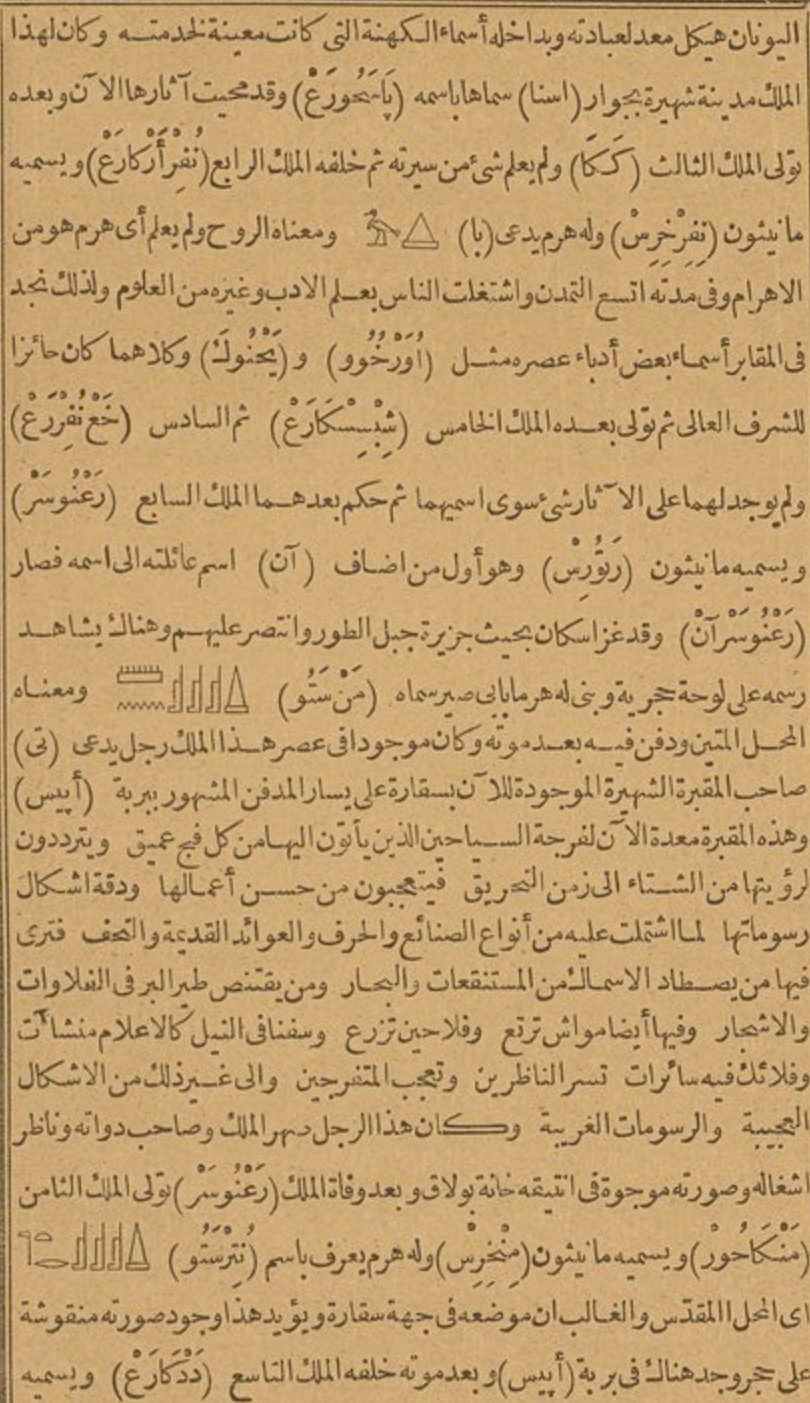 اليونان هيكل معد لعبادته وبداخله أسماء الكهنة التى كانت معينة لخدمتــه وكان لهذا
الملك مدينة شهيرة بجوار (اسنا) سماها باسمه (پَاسَحُورَعْ) وقد محيت آثارها الآن وبعده
تولى الملك الثالث (كَكَا) ولم يعلم شئ من سيرته ثم خلفه الملك الرابع (نُفِرْأَرْكارَعْ) ويسميه
مانيثون (نِفِرْخِرِسْ) وله هرم يدعى (با) ومعناه الروح ولم يعلم أى هرم هو من
الاهرام وفى مدته اتسع التمدن واشتغلت الناس بعــلم الادب وغيره من العلوم ولذلك نجد
فى المقابر أسمــاء بعض أدباء عصره مثــل (اُورْخُوو) و (يَحْنُوكْ) وكلاهما كان حائزا
للشرف العالى ثم تولى بعــده الملك الخامس (شِبْسِسْكَارَعْ) ثم السادس (خَعْ نُفْرَرَعْ)
ولم يوجد لهما على الآثار شئ سوى اسميهما ثم حكم بعدهــما الملك السابع (رَعْنُوسَرْ)
ويسميه مانيثون (رَتُورِسْ) وهو أول من اضــاف (آن) اسم عائلته الى اسمه فصار
(رَعْنُوسَرْآنْ) وقد غزا سكان بحيث جزيرة جبل الطور وانتصر عليهــم وهناك يشاهــد
رسمه على لوحة حجرية وبنى له هرما بابى صير سماه (مَنْ سَتُو) ومعنــاه
المحــل المتين ودفن فيــه بعــد موته وكان موجودا فى عصر هــذا الملك رجل يدعى (تى)
صاحب المقبرة الشهيرة الموجودة للآن بسقارة على يسار المدفن المشهور ببربة (أبيس)
وهذه المقبرة معدة الآن لفرجة الســياحين الذين يأتون اليهــا من كل فج عميق ويترددون
لرؤيتها من الشــتاء الى زمن التحريق فيتعجبون من حســن أعمــالها ودقة اشكال
رسوماتها لمــا اشتملت عليه من أنواع الصنائع والحرف والعوائد القديمة والتحف فترى
فيها من يصــطاد الاسمــاك من المستنقعات والبحــار ومن يقتنص طير البر فى الفلاوات
والاشجار وفيها أيضا مواش ترتع وفلاحين تزرع وسفنا فى النيل كالاعلام منشآت
وفلائك فيه سائرات تسر الناظرين وتعجب المتفرجين والى غــير ذلك من الاشكال
العجيبة والرسومات الغريبة وكــان هذا الرجل صهر الملك وصاحب دواته وناظر
اشغاله وصورته موجوة فى انتيقه خانة بولاق وبعد وفاة الملك (رَعْنُوسَرْ) تولى الملك الثامن
(مَنْكَاحُورْ) ويسميه مانيثون (مِنْخِرِسْ) وله هرم يعرف باسم (نُتِرْسَتُو)
اى المحل االمقدّس والغــالب ان موضعه فى جهة سقارة ويؤيد هذا وجود صورته منقوشة
على حجر وجد هناك فى بربة (أبيس) وبعد موته خلفه الملك التاسع (دَدْكَارَعْ) ويسميه